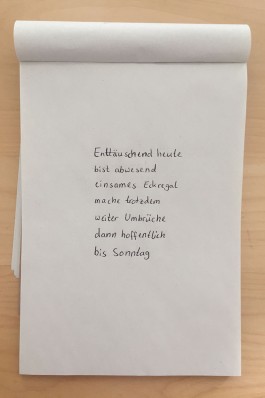 Enttäuschend heute
bist abwesend
einsames Eckregal
mache trotzdem
weiter Umbrüche
dann hoffentlich
bis Sonntag